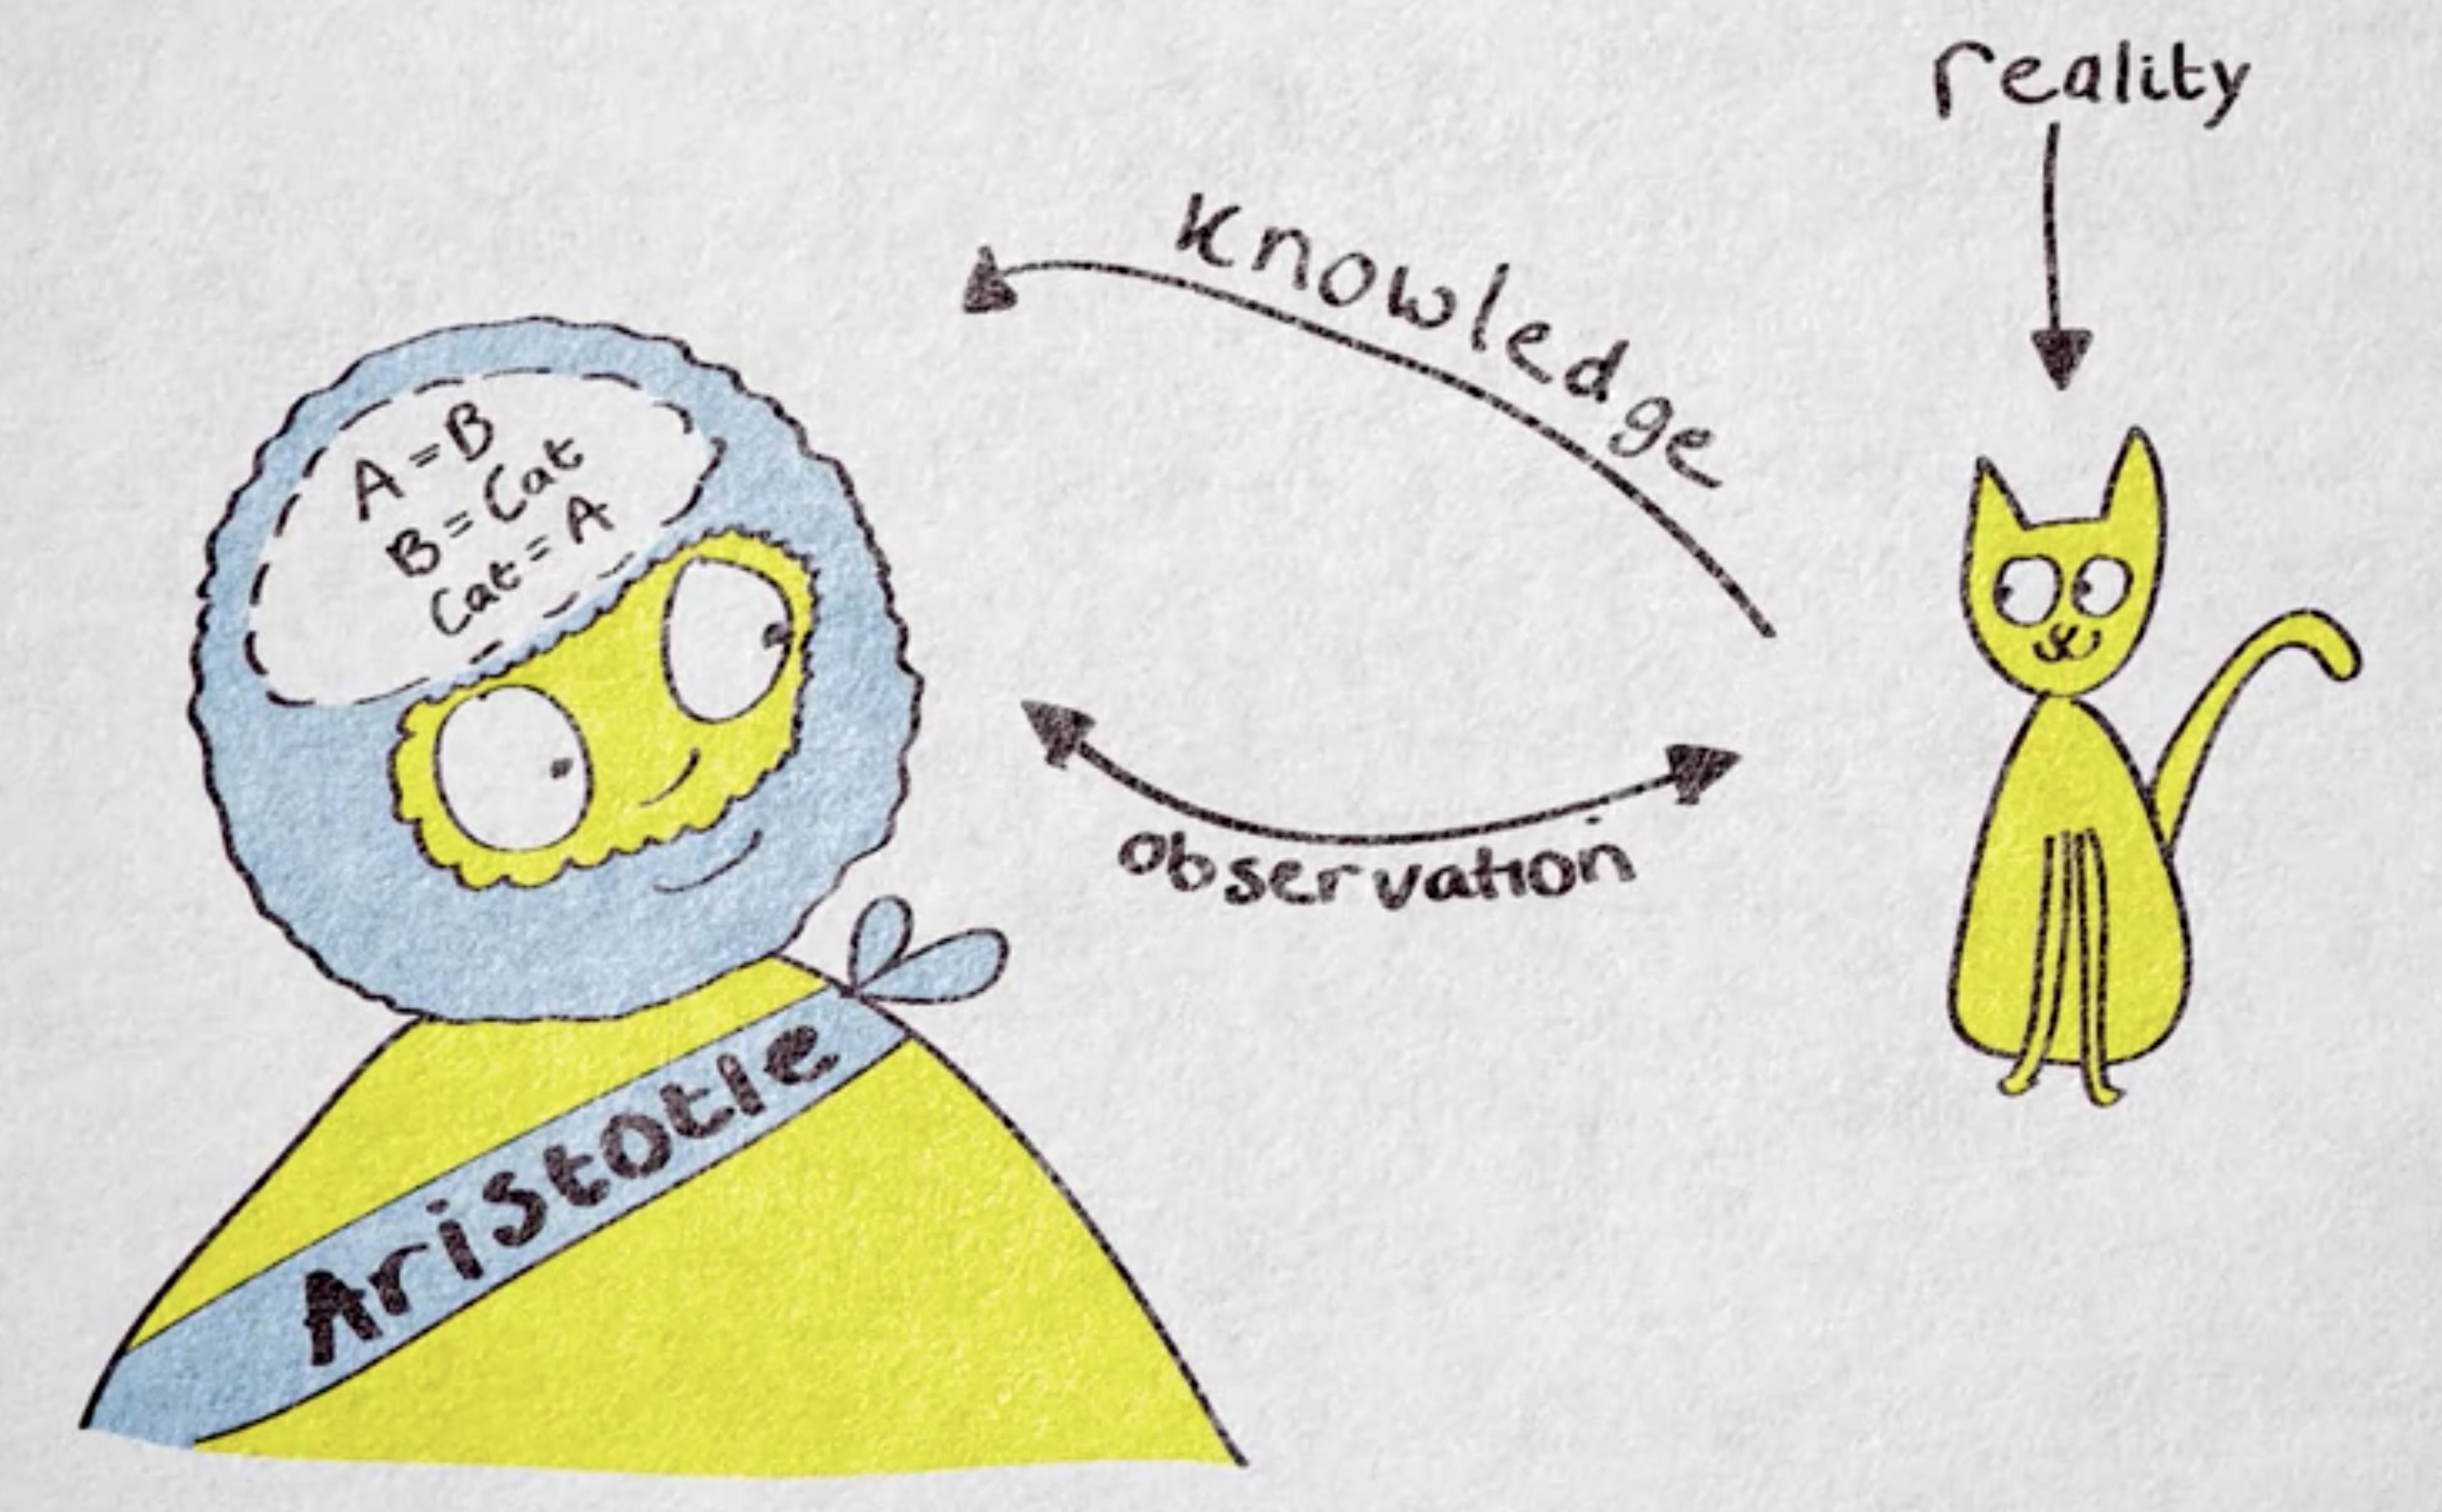 reality
Knowledge
A = B
B = Cat
Cat = A
observation
Aristotle